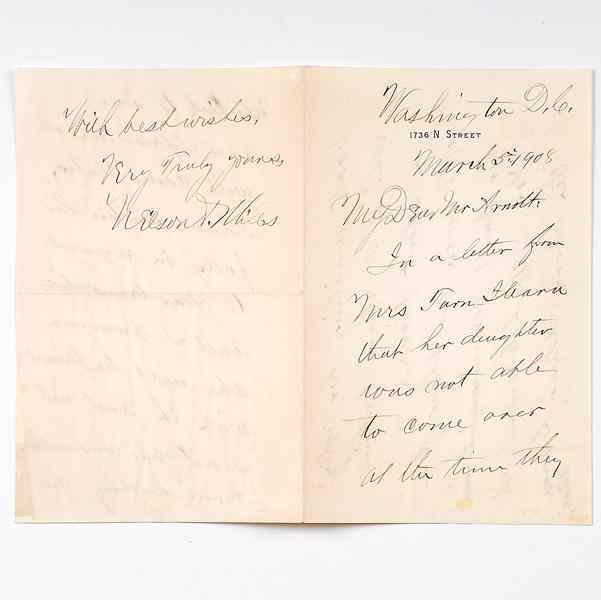 Washington D.C.
1736 N STREET
March 5th 1908
My Dear Mr Arnold.
In a letter from
Mrs I learn
that her daughter
was not able
to come over
at the time they
With best wishes,
Very Truly yours,
Nelson A. Miles